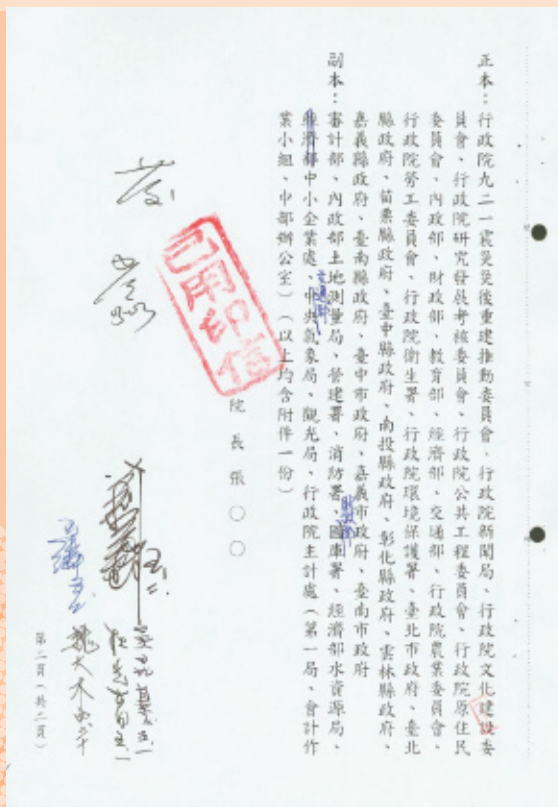 正本：行政院九二一震災災後重建推動委員會、行政院新聞局、行政院文化建設委
員會、行政院研究發展考核委員會、行政院公共工程委員會、行政院原住民
委員會、內政部、財政部、教育部、經濟部、交通部、行政院農業委員會、
行政院勞工委員會、行政院衛生署、行政院環境保護署、臺北市政府、臺北
縣政府、苗栗縣政府、臺中縣政府、南投縣政府、彰化縣政府、雲林縣政府、
嘉義縣政府、臺南縣政府、臺中市政府、嘉義市政府、臺南市政府
副本：審計部、內政部土地測量局、營建署、消防署、財政部國庫署、經濟部水資源局、
經濟部中小企業處、交通部中央氣象局、觀光局、行政院主計處（第一局、會計作
業小組、中部辦公室）（以上均含附件一份）
院長張○○
已用印信
第二頁（共二頁）